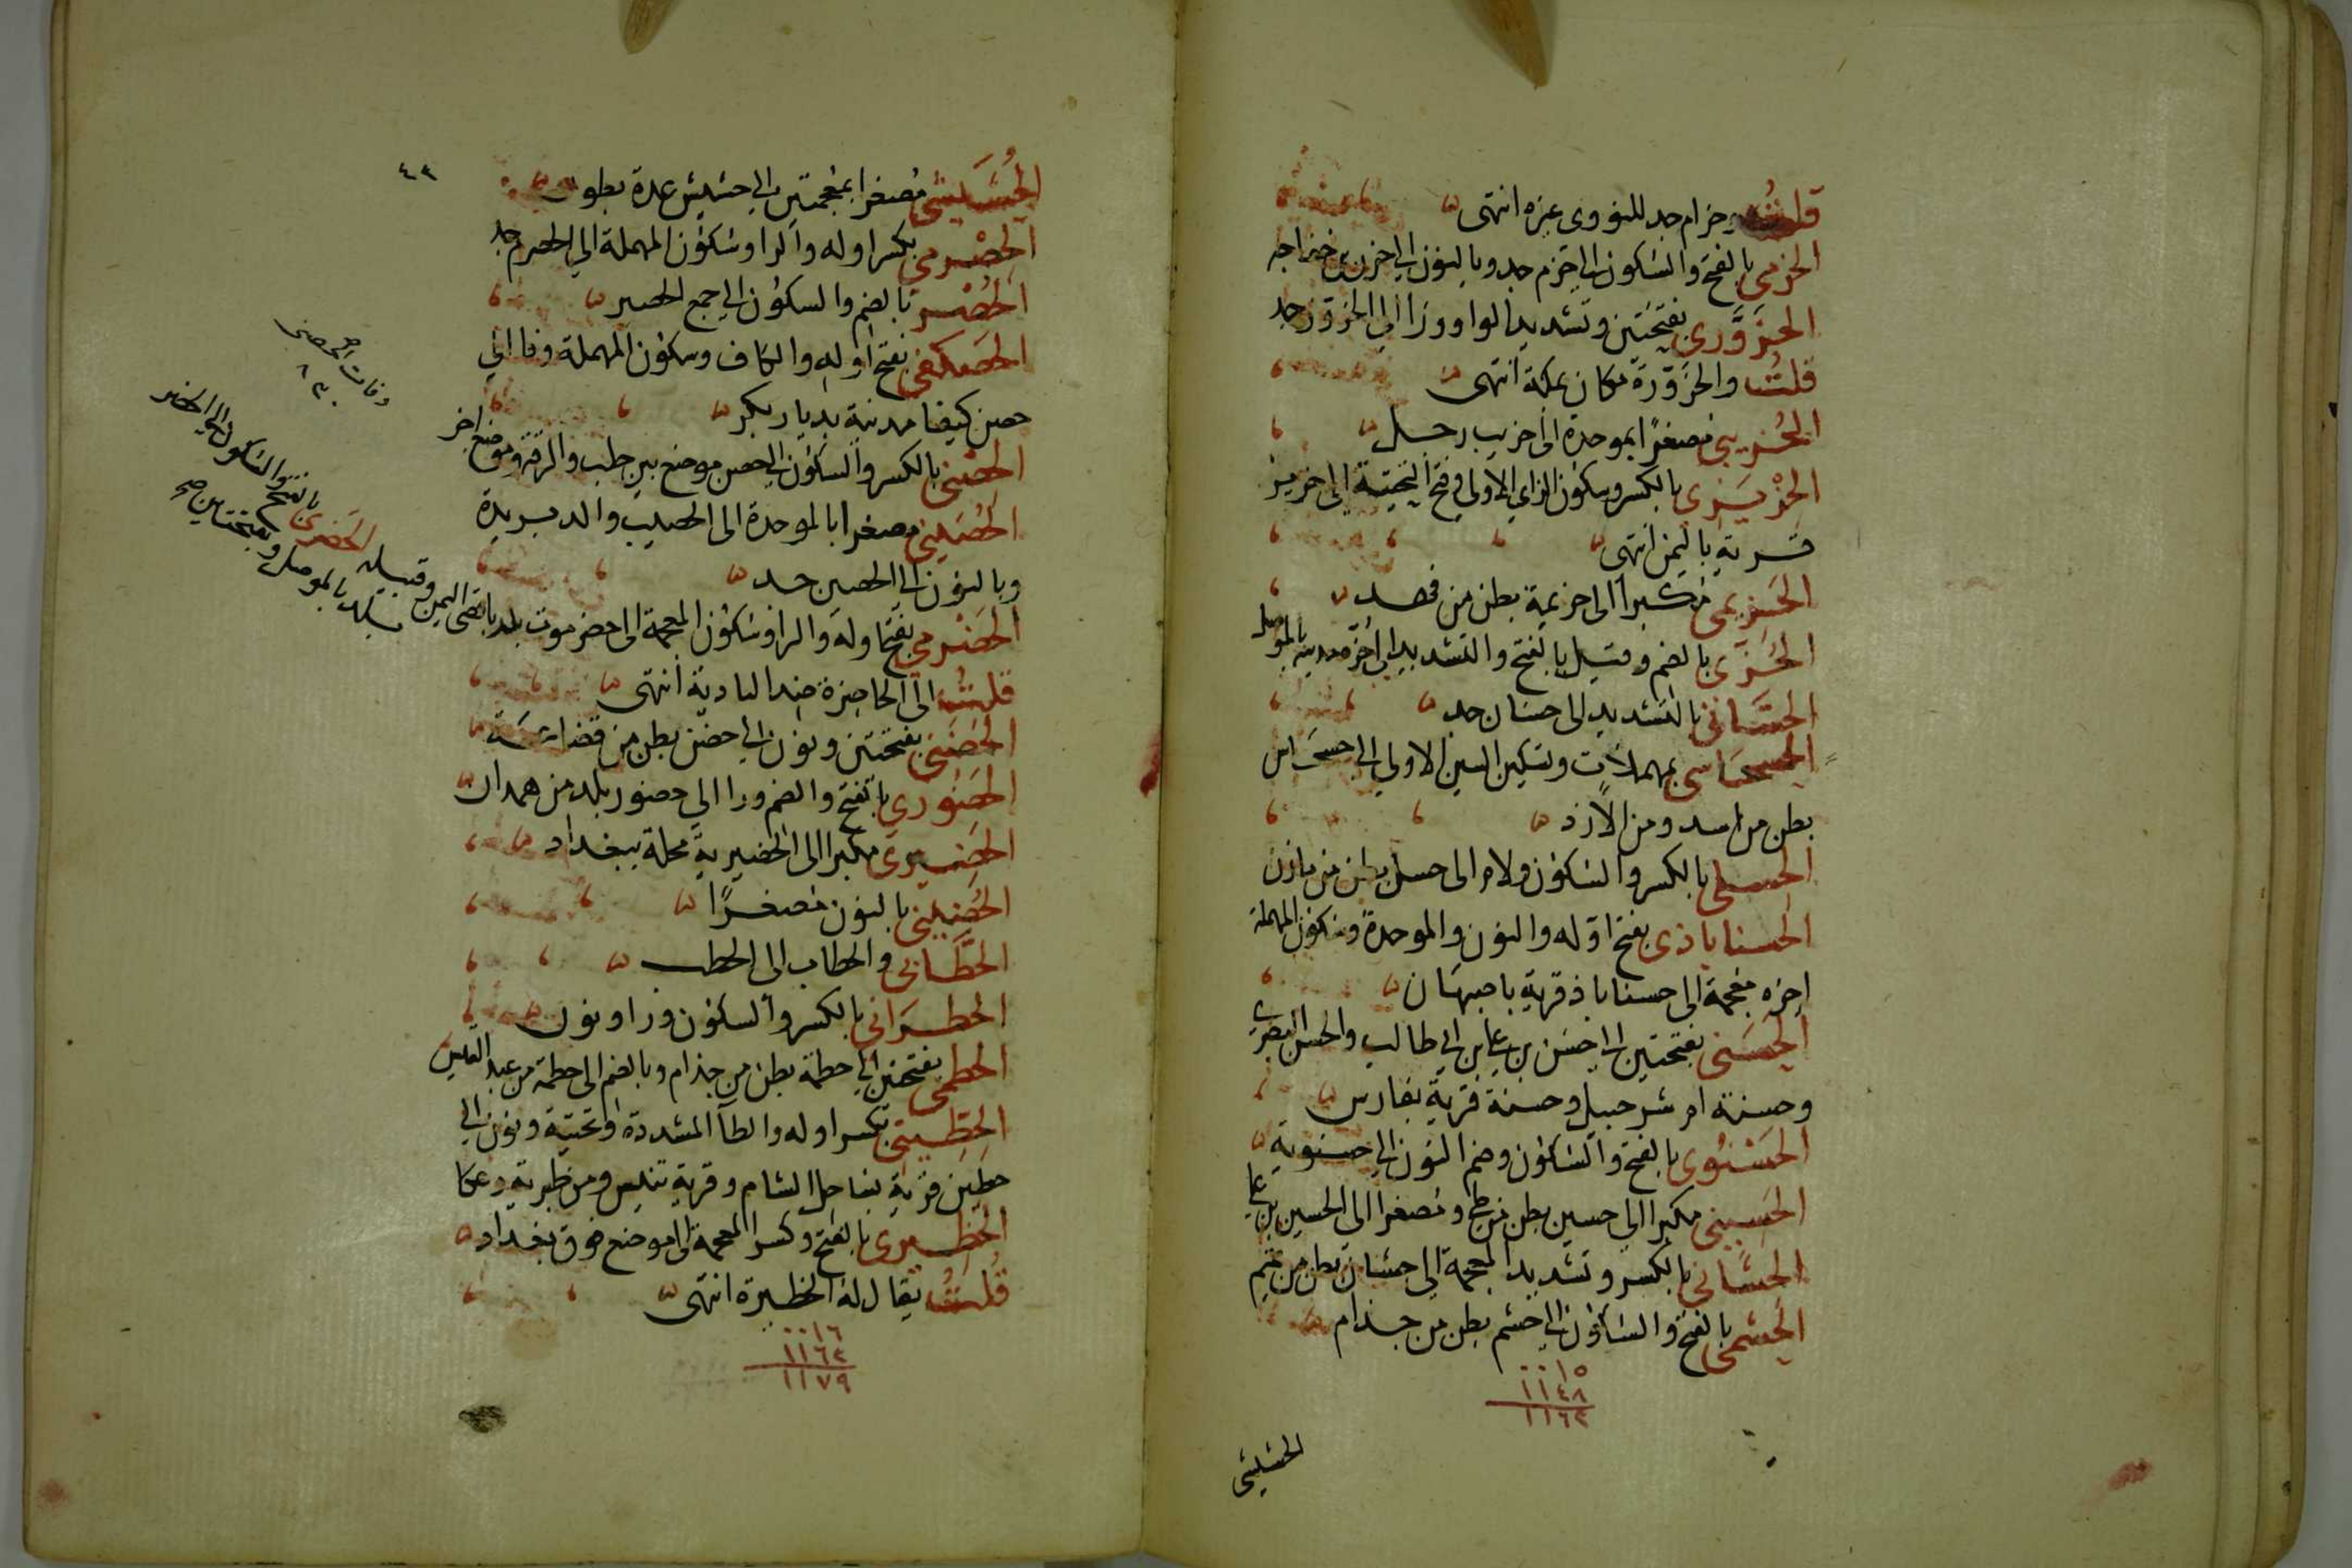 قلت وحزام جد للنووي عزه انتهى
الحزمي بالفتح والسكون الى حزم جد وبالنون الى حزن بن خفاجه
الحزوري بفتحتين وتشديد الواو ورا الى الحزور جد
قلت والحزورة مكان بمكة انتهى
الحزيبي مصغرا بموحدة الى حزيب رجل
الحزيزي بالكسر وسكون الزاي الاولى وفتح التحتية الى حزيز
قرية باليمن انتهى
الحزيمي مكبرا الى حزيمة بطن من فهد
الحزي بالضم وقيل بالفتح والتشديد الى حزة مدينة بالموصل
الحساني بالتشديد الى حسان جد
الحسحاسي بمهملات وتسكين السين الاولى الى حسحاس
بطن من اسد ومن الازد
الحسلي بالكسر والسكون ولام الى حسل بطن من مازن
الحسناباذي بفتح اوله والنون والموحدة وسكون المهملة
اخره معجمة الى حسناباذ قرية باصبهان
الحسني بفتحتين الى حسن بن علي بن ابي طالب والحسن البصري
وحسنة ام شرحبيل وحسنة قرية بفارس
الحسنوي بالفتح والسكون وضم النون الى حسنوية
الحسيني مكبرا الى حسين بطن من طي ومصغرا الى الحسين بن علي
الحشاني بالكسر وتشديد المعجمة الى حشان بطن من تميم
الحشمي بالفتح والسكون الى حشم بطن من جذام
٠٠١٥
١١٤٨
١١٦٣
الحشيشي
٤٣
الحشيشي مصغرا بمعجمتين الى حشيش عدة بطون
الحصرمي بكسر اوله والرا وسكون المهملة الى الحصرم جد
الحصري بالضم والسكون الى جمع الحصير
الحصكفي بفتح اوله والكاف وسكون المهملة وفا الى
حصن كيفا مدينة بديار بكر
الحصني بالكسر والسكون الى حصن موضع بين حلب والرقة وموضع اخر
الحصيبي مصغرا بالموحدة الى الحصيب والد بريدة
وبالنون الى الحصين جد
الحضرمي بفتح اوله والرا وسكون المعجمة الى حضرموت بلد باقصى اليمن وقبيله
الحضري بالفتح والسكون الى الحضر
بلد بالموصل وبفتحتين صح
قلت الى الحاضرة ضد البادية انتهى
الحضني بفتحتين ونون الى حضن بطن من قضاعة
الحضوري بالفتح والضم ورا الى حضور بلد من همدان
الحضيري مكبرا الى الحضيرية محلة ببغداد
الحضيني بالنون مصغرا
الحطابي والحطاب الى الحطب
الحطراني بالكسر والسكون ورا ونون
الحطمي بفتحتين الى حطمة بطن من جذام وبالضم الى حطمة من عبد القيس
الحطيني بكسر اوله والطا المشددة وتحتية ونون الى
حطين قرية بساحل الشام وقرية تنيس ومن طبرية وعكا
الحظيري بالفتح وكسر المعجمة الى موضع فوق بغداد
قلت يقال له الحظيرة انتهى
٠٠١٦
١١٦٣
١١٧٩